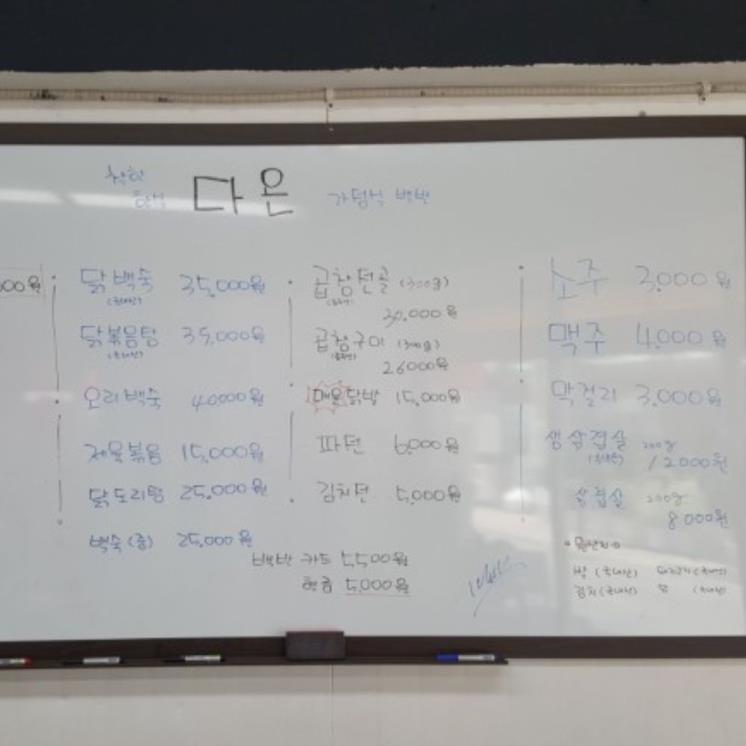 착한
다온 가정식 백반
00원
닭백숙 35,000원
(국내산)
닭볶음탕 35,000원
(국내산)
오리백숙 40000원
제육볶음 15,000원
닭도리탕 25,000원
백숙(중) 25,000원
곱창전골 (300g)
30,000원
곱창구이 (300g)
26000원
매운닭발 15,000원
파전 6,000원
김치전 5,000원
백반 카드 5,500원
현금 5,000원
소주 3,000원
맥주 4,000원
막걸리 3,000원
생삼겹살 200g
(국내산) 12000원
삼겹살 200g
8000원
원산지
(국내산) 돼지고기(국내산)
김치(국내산) (국내산)